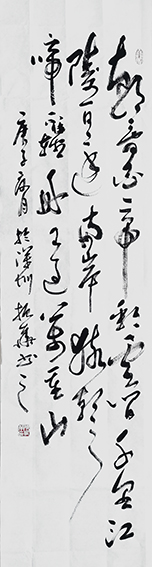 朝辭白帝彩雲間千里江
陵一日還兩岸猿聲
啼輕舟已過萬重山
庚子月於深圳振華书之